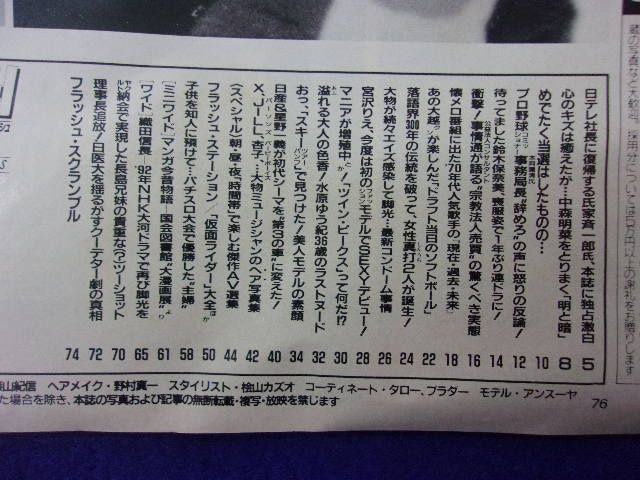 日テレ社長に復帰する氏家斉一郎氏、本誌に独占激白 5
めでたく当選はしたものの… 8
心のキズは癒えたが…中森明菜をとりまく「明と暗」 10
プロ野球コミッショナー事務局長“辞めろ”の声に怒りの反論! 12
待ってました鈴木保奈美、喪服姿で1年ぶり連ドラに! 14
衝撃!事情通が語る“宗教法人売買”の驚くべき実態 16
懐メロ番組に出た70年代人気歌手の〈現在・過去・未来〉 18
あの大越が楽しんだ、「ドラフト当日のソフトボール」 20
落語界300年の伝統を破って、女性真打2人が誕生! 22
大物が続々エイズ感染して脚光…最新コンドーム事情 24
宮沢りえ、今度は初のモデルでSEXYデビュー! 26
マニアが増殖中か!「ツイン・ピークス」って何だ!? 28
溢れる大人の色香!水原ゆう紀36歳のラストヌード 30
おっ、“スキーツアーバッグ”で見つけた!美人モデルの素顔 32
日産&星野一義が初代シーマを“第3の車”に変えた! 34
X、J(L)L、杏子…大物ミュージシャンのヘア写真集 40
〈スペシャル〉朝・昼・夜、“時間帯”で楽しむ傑作AV選集 42
フラッシュ・ステーション/「仮面ライダー」大全ほか 44
子供を知人に預けて…パチスロ大会で優勝した“主婦” 50
[ミニワイド]マンガ今昔物語-国会図書館“大漫画展” 58
[ワイド]織田信長-’92年NHK大河ドラマで再び脚光を 61
ヤクルト納会で実現した長島兄妹の貴重な(?)ツーショット 65
理事長追放!日医大を揺るがすクーデター劇の真相 70
フラッシュ・スクランブル 72
74
山紀信 ヘアメイク・野村真一 スタイリスト・桧山カズオ コーディネート・タロー、ブラダー モデル・アンスーヤ
た場合を除き、本誌の写真および記事の無断転載・複写・放映を禁じます
76